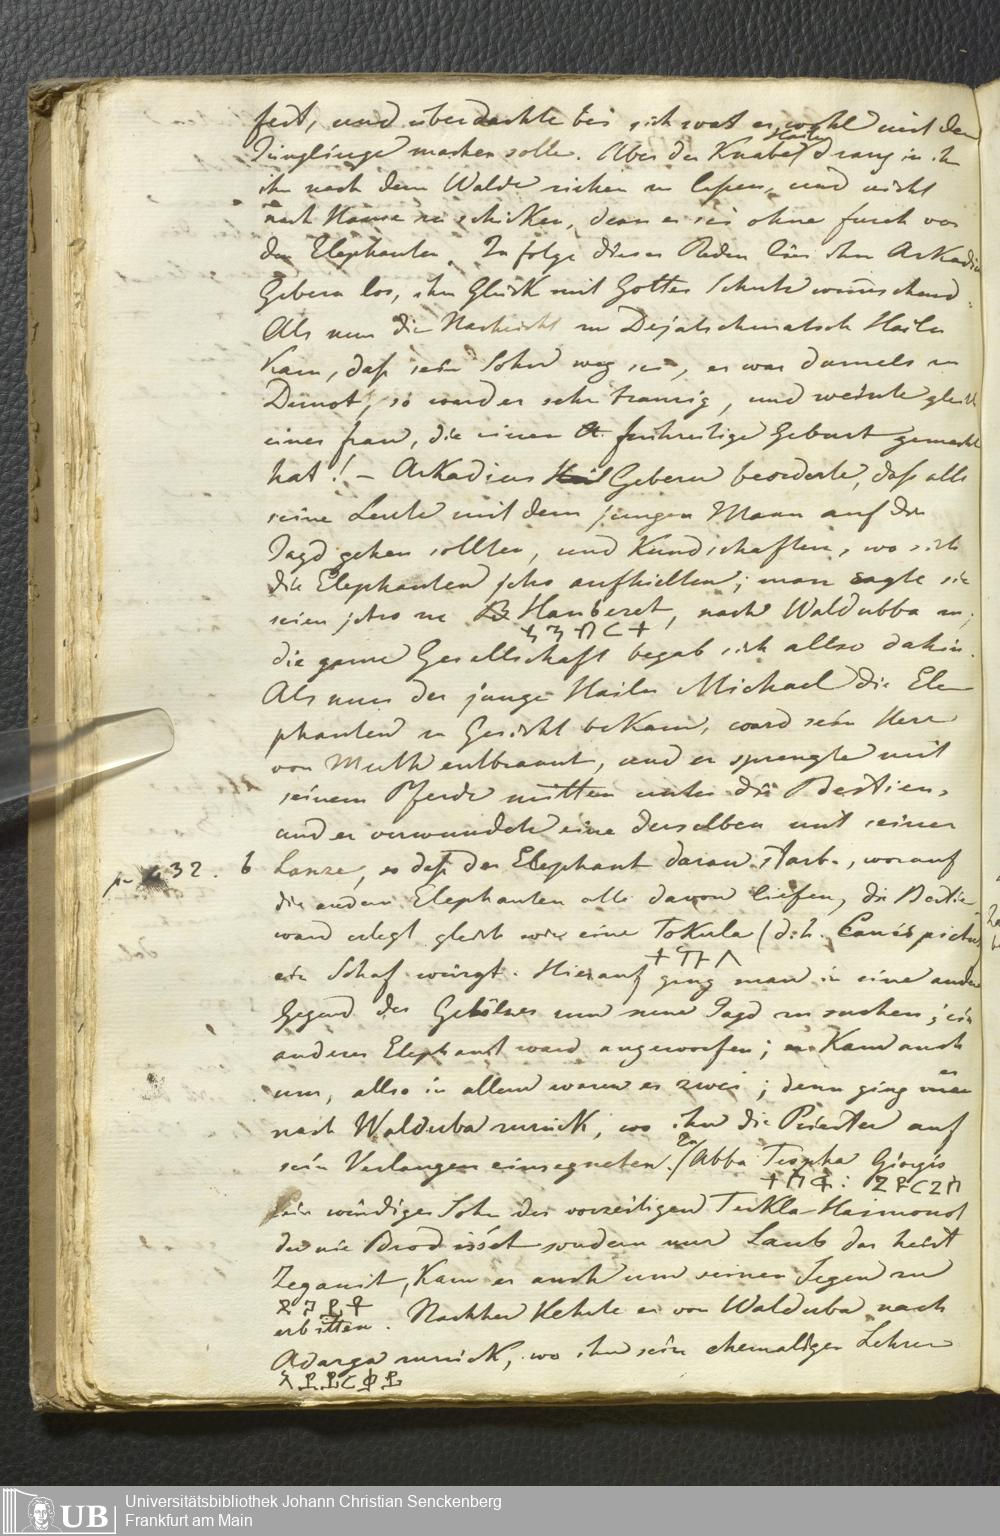 fest, und überdachte bei sich was er wohl mit dem
Jünglinge machen solle. Aber der Knabe Hailu drang in ihn
ihn nach dem Walde ziehen zu lassen, und nicht
nach Hause zu schicken, denn er sei ohne furch vor
den Elephanten. In folge dieser Reden lies ihn Arkadius
Geberu los, ihm Glück mit Gottes Schutz wünschend.
Als nun die Nachricht zu Dejatschmatsch Hailu
Kam, daß sein Sohn weg sei, er war damals in
Demot, so ward er sehr traurig, und weinte gleich
einer frau, die einen frühzeitige Geburt gemacht
hat! – Arkadius Geberu beorderte, daß alle
seine Leute mit dem jungen Mann auf die
Jagd gehen sollten, und Kundschaften, wo sich
die Elephanten jetzo aufhielten; man sagte sie
seien jetzo zu Hanberet, nach Waldubba zu;
ኃንበርት
die ganze Gesellschaft begab sich allso dahin.
Als nun der junge Hailu Michael die Ele-
phanten zu Gesicht bekam, ward sein Herz
von Muth entbrannt, und er sprengte mit
seinem Pferde mitten unter die Bestien,
und er verwundete eine derselben mit seiner
p. 32. b Lanze, so daß der Elephant daran starb, worauf
die andern Elephanten alle davon liefen, die Bestie
ward erlegt gleich wie eine Tokula (d.h. Canis pictus)
ein Schaf würgt. Hierauf ging man in eine andere
Gegend des Gehölzes um neue Jagd zu suchen; ein
anderer Elephant ward angeworfen; er Kam auch
um, allso in allem waren es zwei; denn ging er
nach Walduba zurück, wo ihn die Priester auf
sein Verlangen einsegneten. Zu Abba Giorgis
Ein würdiger Sohn des vorzeitigen Teckla Haimonot
der nie Brod isset sondern nur Laub das heist
Zeganit, Kam er auch um seinen Segen zu
erbitten. Nachher Kehrte er von Walduba nach
Adarga zurück, wo ihn sein ehemaliger Lehrer
Universitätsbibliothek Johann Christian Senckenberg
Frankfurt am Main
UB